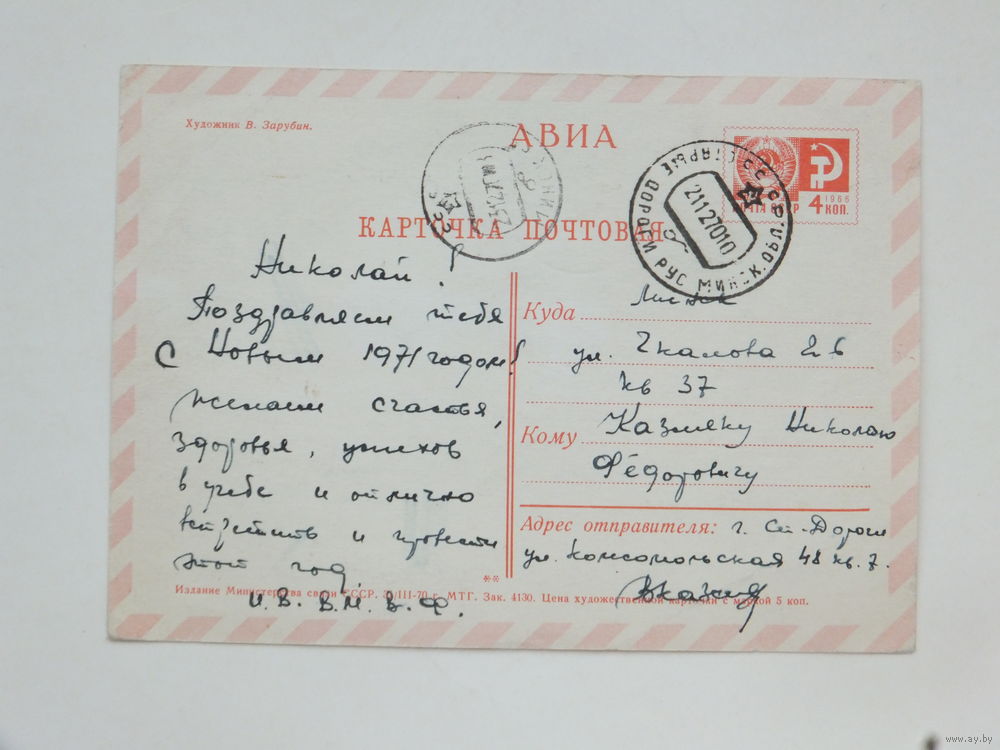 Художник В. Зарубин.
АВИА
КАРТОЧКА ПОЧТОВАЯ
ПОЧТА СССР
1966
4 КОП.
СТАРЫЕ ДОРОГИ РУС МИНСК. ОБЛ.
21127010
Николай!
Поздравляем тебя
с Новым 1971 годом!
желаем счастья,
здоровья, успехов
в учебе и отлично
встретить и провести
этот год.
И. В. В. М. В. Ф.
Куда Минск
ул. Чкалова
кв 37
Кому Казмяку Николаю
Фёдоровичу
Адрес отправителя: г. Ст-Дороги
ул. Комсомольская 48 кв. 7.
Издание Министерства связи СССР. /III-70 г. МТГ. Зак. 4130. Цена художественной карточки с маркой 5 коп.
www.ay.by